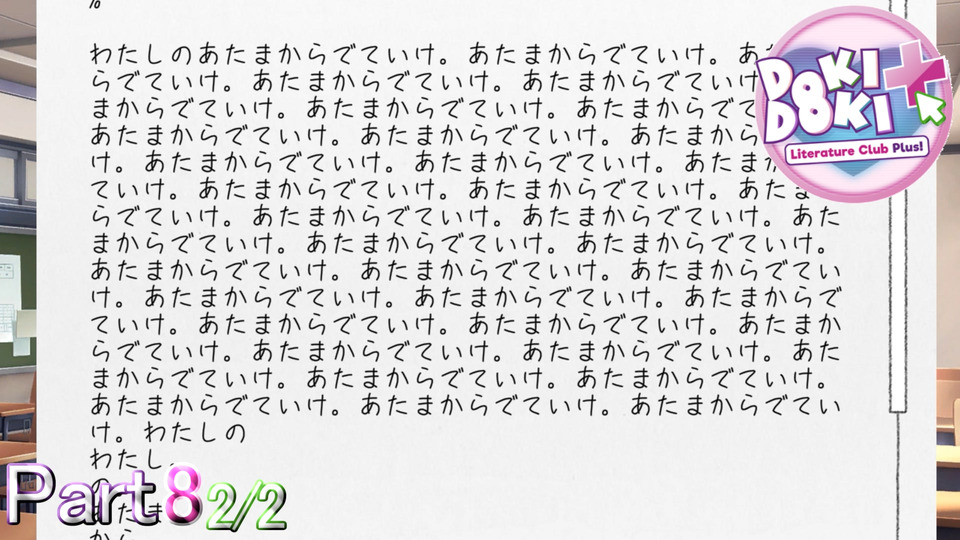 %
わたしのあたまからでていけ。あたまからでていけ。あ
らでていけ。あたまからでていけ。あたまからでていけ
まからでていけ。あたまからでていけ。あたまからでて
あたまからでていけ。あたまからでていけ。あたまから
け。あたまからでていけ。あたまからでていけ。あたま
ていけ。あたまからでていけ。あたまからでていけ。あたま
らでていけ。あたまからでていけ。あたまからでていけ。あた
まからでていけ。あたまからでていけ。あたまからでていけ。
あたまからでていけ。あたまからでていけ。あたまからでてい
け。あたまからでていけ。あたまからでていけ。あたまからで
ていけ。あたまからでていけ。あたまからでていけ。あたまか
らでていけ。あたまからでていけ。あたまからでていけ。あた
まからでていけ。あたまからでていけ。あたまからでていけ。
あたまからでていけ。あたまからでていけ。あたまからでてい
け。わたしの
わたし
の
あたま
から
DOKI
DOKI
Literature Club Plus!
Part8 2/2